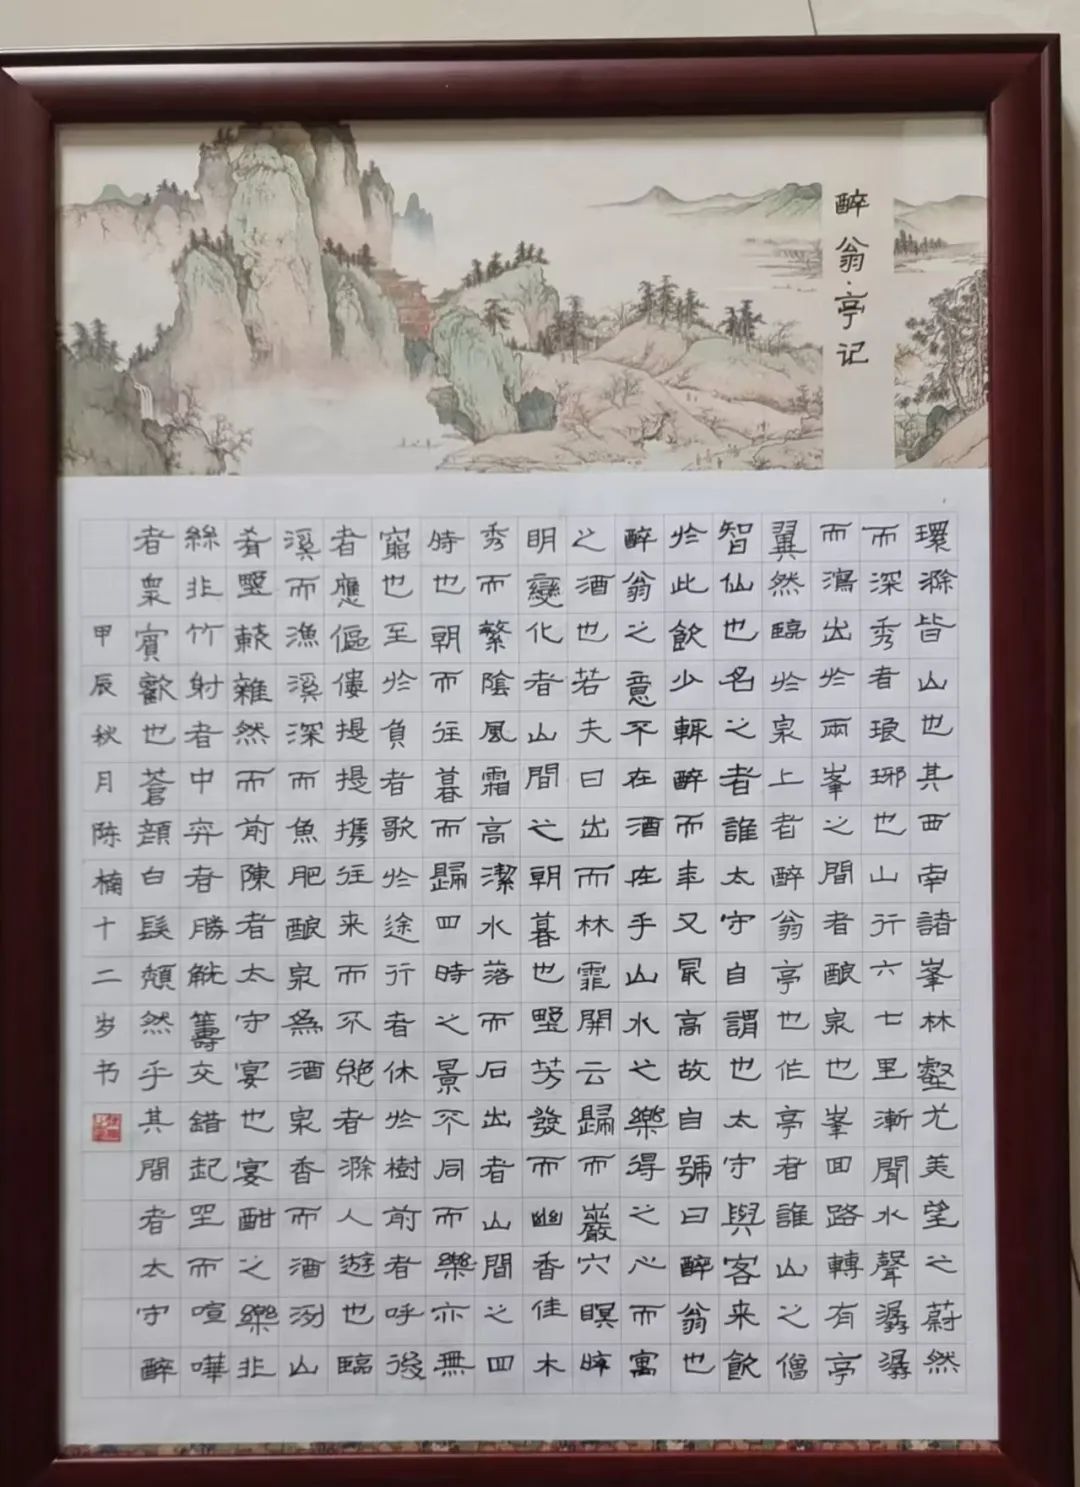 醉翁亭记
環滁皆山也其西南諸峯林壑尤美望之蔚然
而深秀者琅琊也山行六七里漸聞水聲潺潺
而瀉出於兩峯之間者釀泉也峯回路轉有亭
翼然臨於泉上者醉翁亭也作亭者誰山之僧
智仙也名之者誰太守自謂也太守與客来飲
於此飲少輒醉而年又最高故自號曰醉翁也
醉翁之意不在酒在乎山水之樂得之心而寓
之酒也若夫日出而林霏開云歸而巖穴暝晦
明變化者山間之朝暮也野芳發而幽香佳木
秀而繁陰風霜高潔水落而石出者山間之四
時也朝而往暮而歸四時之景不同而樂亦無
窮也至於負者歌於途行者休於樹前者呼後
者應傴僂提提攜往来而不絕者滁人遊也臨
溪而漁溪深而魚肥釀泉為酒泉香而酒洌山
肴野蔌雜然而前陳者太守宴也宴酣之樂非
絲非竹射者中弈者勝觥籌交錯起坐而喧嘩
者眾賓歡也蒼顏白髮頹然乎其間者太守醉
甲辰秋月陈楠十二岁书